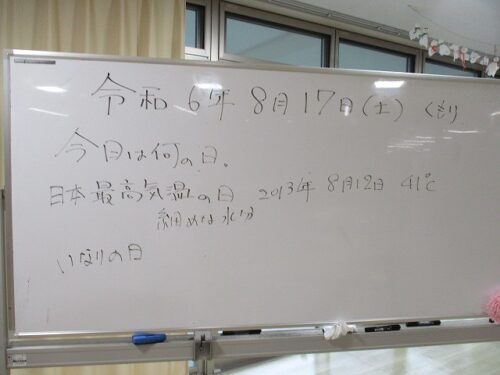 令和 6年 8月17日(土) くもり
今日は何の日。
日本最高気温の日 2013年 8月12日 41℃
細めな水分
いなりの日